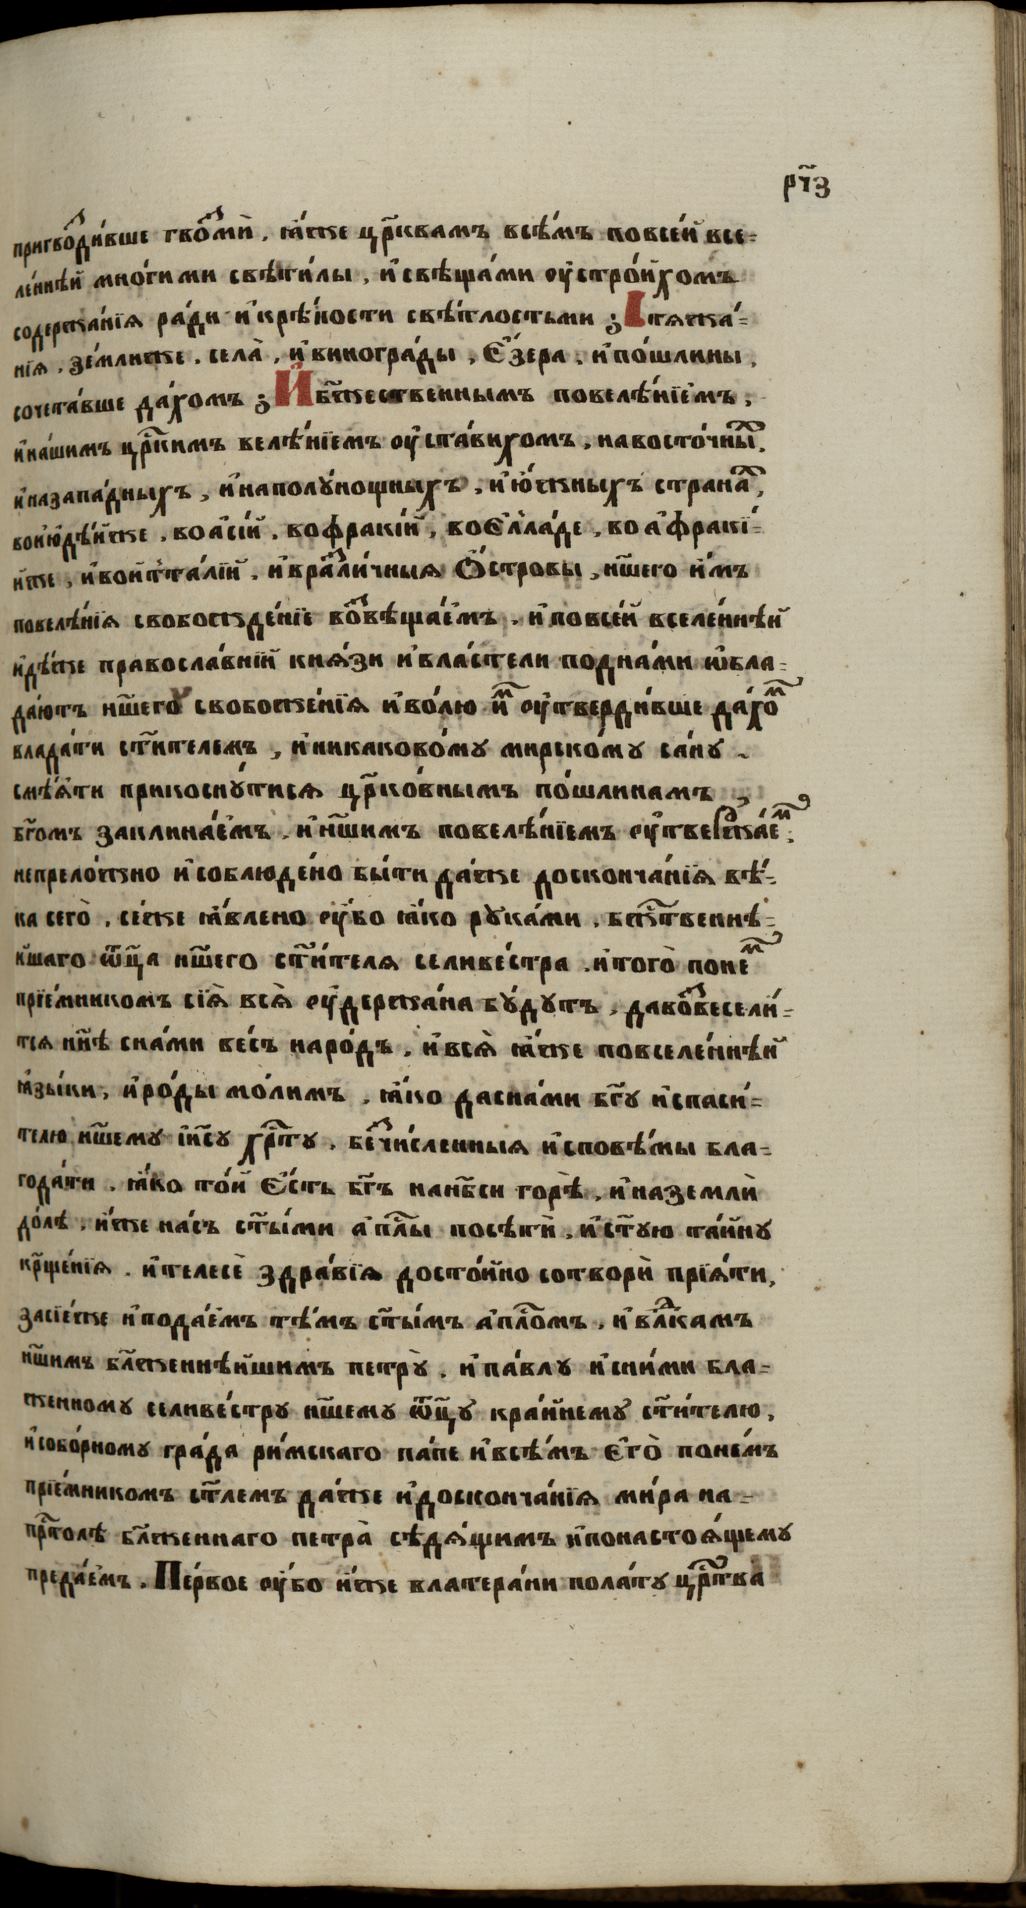 рт҃з
пригвоⷥди́вше гвоⷥмѝ, ꙗ́же цр҃квамъ всѣ́мъ повсе́й все=
ле́ннѣй мно́гими свѣти́лы, и҆свѣща́ми ᲂу҆стро́ихомъ
содержа́нїѧ ра́ди и҆крѣ́пости свѣ́тлостьми ; Стѧжа́=
нїѧ, зе́млиже, села̀, и҆виногра́ды, є҆́зера, и҆по́шлины,
сочета́вше да́хомъ ; И҆бж҃ественнымъ повелѣ́нїемъ,
и҆на́шимъ цр҃скимъ велѣ́нїемъ ᲂу҆ста́вихомъ, навосто́чныⷯ,
и҆назапа́дныхъ, и҆наполу́нощныхъ, и҆ю҆́жныхъ страна́ⷯ,
вою҆дѣ́йже, воа҆сі́й, вофракі́й, воє҆лла́де, воа҆фракі́=
йже, и҆вои҆та́лїй, и҆враⷥли́чныѧ ѻ҆́стровы, нш҃его и҆́мъ
повелѣ́нїѧ свобожде́нїе воⷥвѣща́емъ, и҆повсе́й вселе́ннѣй
идѣ́же правосла́внїй кнѧ́зи и҆вла́стели подна́ми ѡ҆бла=
да́ютъ нш҃егѹ свобоже́нїѧ и҆во́лю и҆ⷨ ᲂу҆тверди́вше да́хоⷨ
влада́ти ст҃ителемъ, и҆никаково́му мирско́му са́ну
смѣ́ѧти прикосну́тисѧ цр҃ко́внымъ по́шлинамъ,
бг҃омъ заклина́емъ, и҆нш҃имъ повелѣ́нїемъ ᲂу҆твеⷬжа́еⷨ,
непрело́жно и҆соблюдено́ бы́ти да́же досконча́нїѧ вѣ́=
ка сегѡ̀, се́же ꙗ҆́влено ᲂу҆́бо ꙗ҆́ко рука́ми, бжⷭ҇твеннѣ=
йшаго ѿц҃а нш҃его ст҃и́телѧ селиве́стра, и҆того̀ понеⷨ
прїе́мникомъ сїѧ̀ всѧ̀ ᲂу҆держа́на бу́дутъ, давоⷥвесели́=
тсѧ нн҃ѣ сна́ми ве́съ наро́дъ, и҆всѧ̀ ꙗ҆́же повселе́ннѣй
ꙗ҆зы́ки, и҆ро́ды мо́лимъ, ꙗ҆́ко дасна́ми бг҃у и҆спаси́=
телю нш҃ему іи҃су хрⷭ҇ту, беⷥчи́сленныѧ и҆сповѣ́мы бла=
года́ти, ꙗ҆́ко то́й є҆́сть бг҃ъ нанб҃си горѣ̀, и҆наземлѝ
до́лѣ, и҆́же на́съ ст҃ы́ми а҆пⷭ҇лы посѣтѝ, и҆ст҃ую та́йну
кр҃щенїѧ, и҆телесѐ здра́вїѧ досто́йно сотворѝ прїѧ́ти,
засїе́же и҆пода́емъ тѣ́мъ ст҃ы́мъ а҆пⷭ҇ломъ, и҆влⷣкамъ
нш҃имъ бл҃женнѣйшимъ петрꙋ̀, и҆па́влу и҆сни́ми бла=
женному селиве́стру нш҃ему ѿц҃ꙋ кра́йнемꙋ ст҃и́телю,
и҆собо́рному гра́да ри́мскаго па́пе и҆всѣ́мъ є҆го̀ поне́мъ
прїе́мникомъ ст҃лемъ да́же и҆досконча́нїѧ ми́ра на=
прⷭ҇то́лѣ бл҃женнаго петра̀ сѣдѧ́щимъ и҆понастоѧ́щему
преда́емъ. Пе́рвое ᲂу҆́бо и҆́же влатера́ни пола́ту црⷭ҇тва